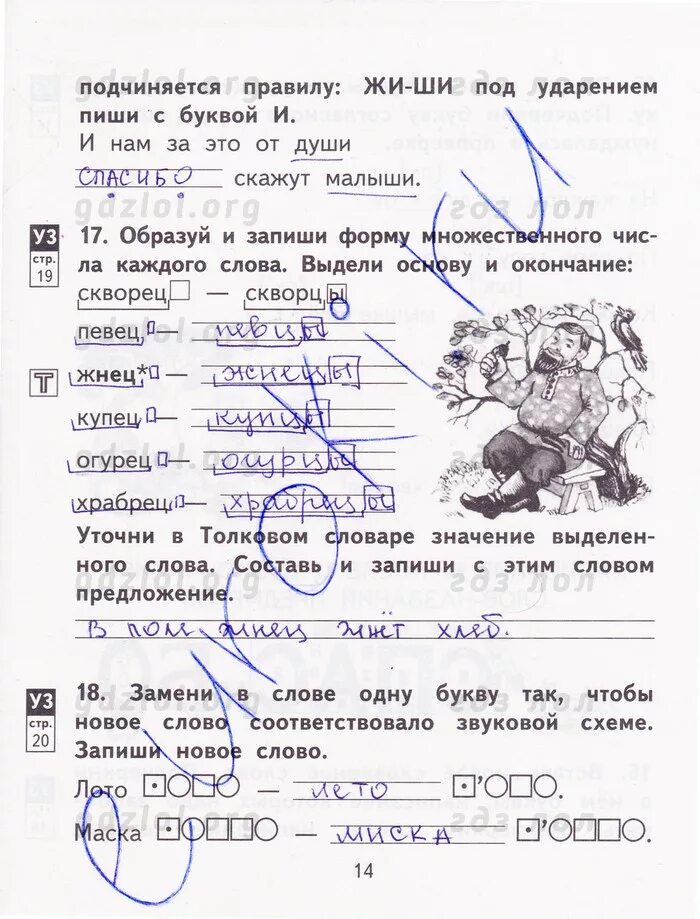 gdzlol.org гдз лол
подчиняется правилу: ЖИ-ШИ под ударением
пиши с буквой И.
И нам за это от души
СПАСИБО скажут малыши.
gdzlol.org гдз лол
УЗ стр. 19
17. Образуй и запиши форму множественного чис-
ла каждого слова. Выдели основу и окончание:
скворец — скворцы
певец — певцы
Т жнец* — жнецы
купец — купцы
огурец — огурцы
храбрец — храбрецы
Уточни в Толковом словаре значение выделен-
ного слова. Составь и запиши с этим словом
предложение.
В поле жнец жнёт хлеб.
УЗ стр. 20
18. Замени в слове одну букву так, чтобы
новое слово соответствовало звуковой схеме.
Запиши новое слово.
Лото — лето
Маска — миска
14